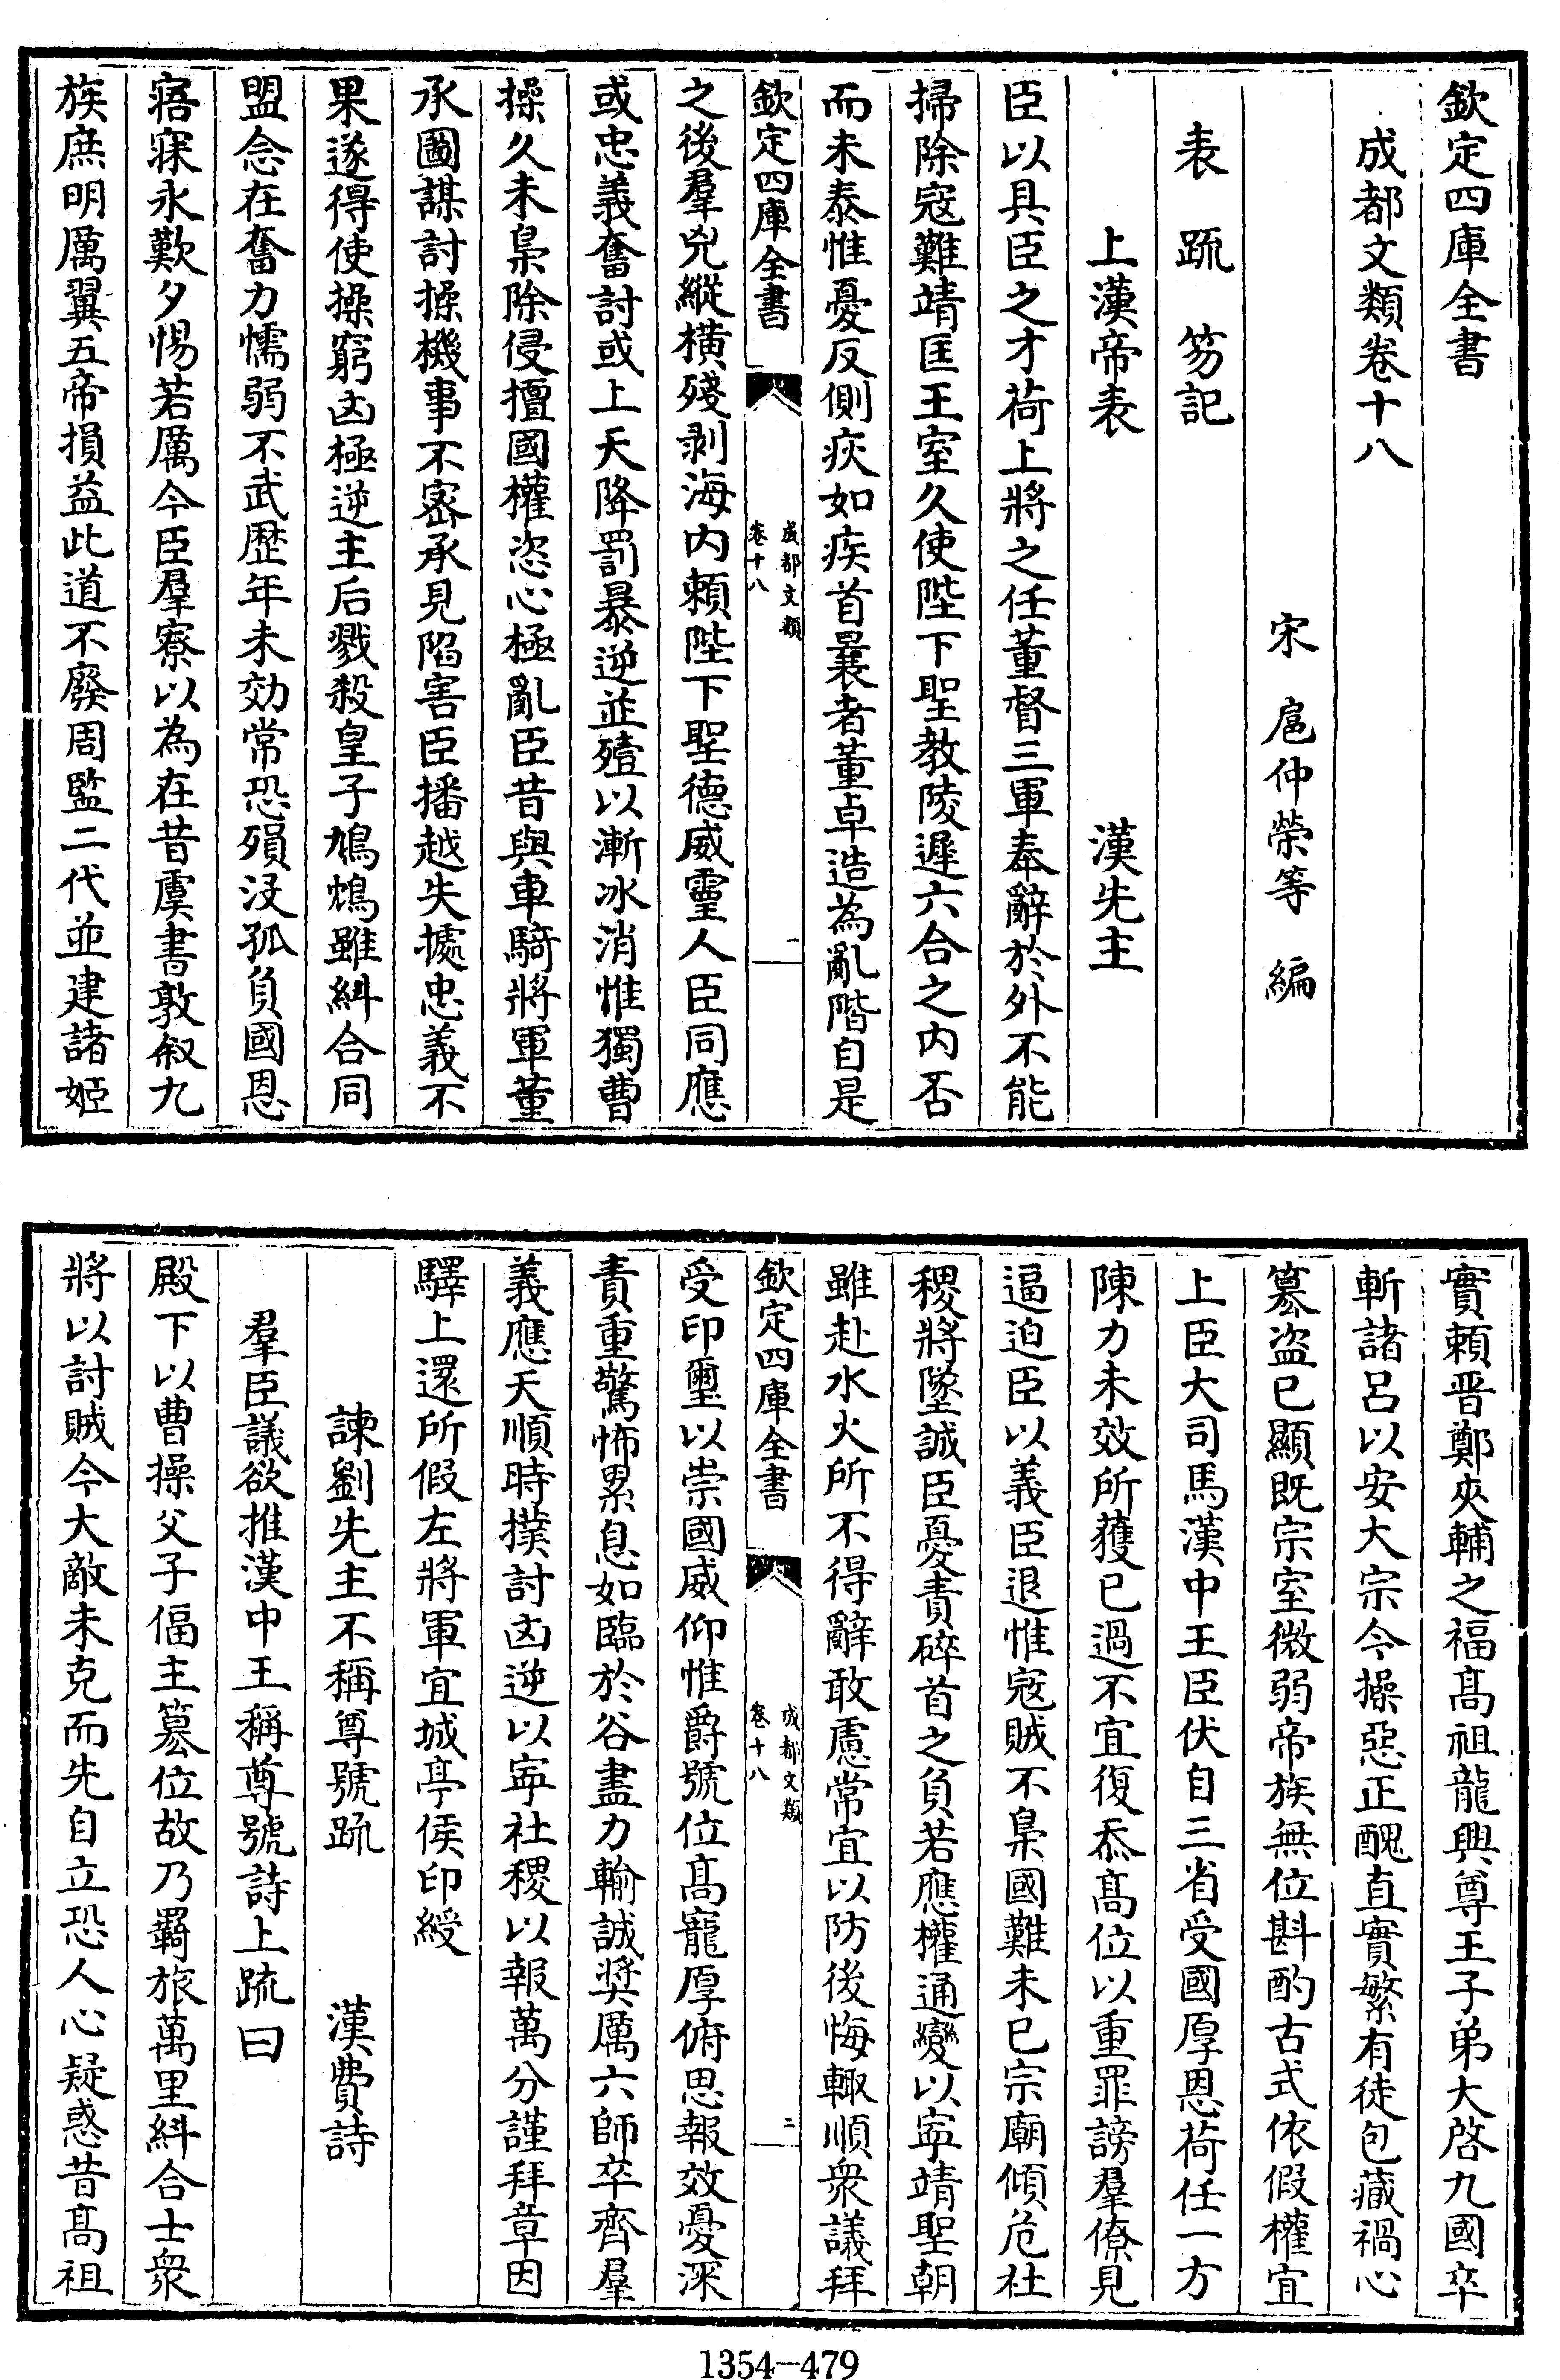 欽定四庫全書
成都文類卷十八
宋 扈仲榮等 編
表 疏 笏記
上漢帝表 漢先主
臣以具臣之才荷上將之任董督三軍奉辭於外不能
掃除寇難靖匡王室久使陛下聖教陵遲六合之內否
而未泰惟憂反側疢如疾首曩者董卓造為亂階自是
欽定四庫全書
成都文類
卷十八
一
之後羣兇縱橫殘剥海內賴陛下聖德威靈人臣同應
或忠義奮討或上天降罰暴逆並殪以漸冰消惟獨曹
操久未梟除侵擅國權恣心極亂臣昔與車騎將軍董
承圖謀討操機事不密承見陷害臣播越失據忠義不
果遂得使操窮凶極逆主后戮殺皇子鴆鴆雖糾合同
盟念在奮力懦弱不武歷年未効常恐殞沒孤負國恩
寤寐永歎夕惕若厲今臣羣寮以為在昔虞書敦敘九
族庶明厲翼五帝損益此道不廢周監二代並建諸姬
實賴晉鄭夾輔之福髙祖龍興尊王子弟大啓九國卒
斬諸呂以安大宗今操惡正醜直實繁有徒包藏禍心
簒盜已顯既宗室微弱帝族無位斟酌古式依假權宜
上臣大司馬漢中王臣伏自三省受國厚恩荷任一方
陳力未效所獲已過不宜復忝髙位以重罪謗羣僚見
逼迫臣以義臣退惟寇賊不梟國難未已宗廟傾危社
稷將墜誠臣憂責碎首之負若應權通變以寧靖聖朝
雖赴水火所不得辭敢慮常宜以防後悔輙順衆議拜
欽定四庫全書
成都文類
卷十八
二
受印璽以崇國威仰惟爵號位髙寵厚俯思報效憂深
責重驚怖累息如臨於谷盡力輸誠奬厲六師卒齊羣
義應天順時撲討凶逆以寧社稷以報萬分謹拜章因
驛上還所假左將軍宜城亭侯印綬
諫劉先主不稱尊號疏 漢費詩
羣臣議欲推漢中王稱尊號詩上疏曰
殿下以曹操父子偪主簒位故乃羇旅萬里糾合士衆
將以討賊今大敵未克而先自立恐人心疑惑昔髙祖
1354-479